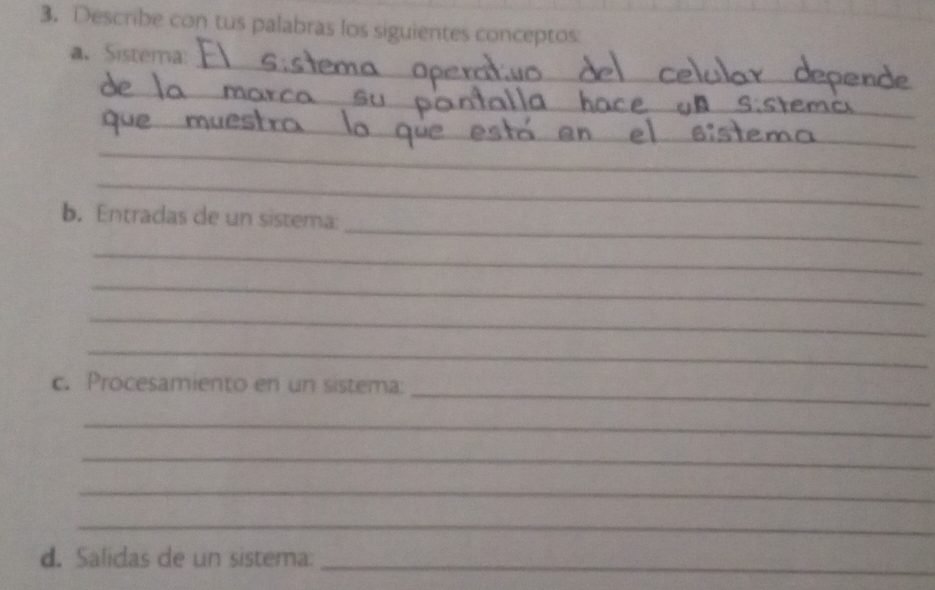 3. Describe con tus palabras los siguientes conceptos:
a. Sistema: El sistema operativo del celular depende
de la marca su pantalla hace un sistema
que muestra lo que está en el sistema
b. Entradas de un sistema:
c. Procesamiento en un sistema:
d. Salidas de un sistema: